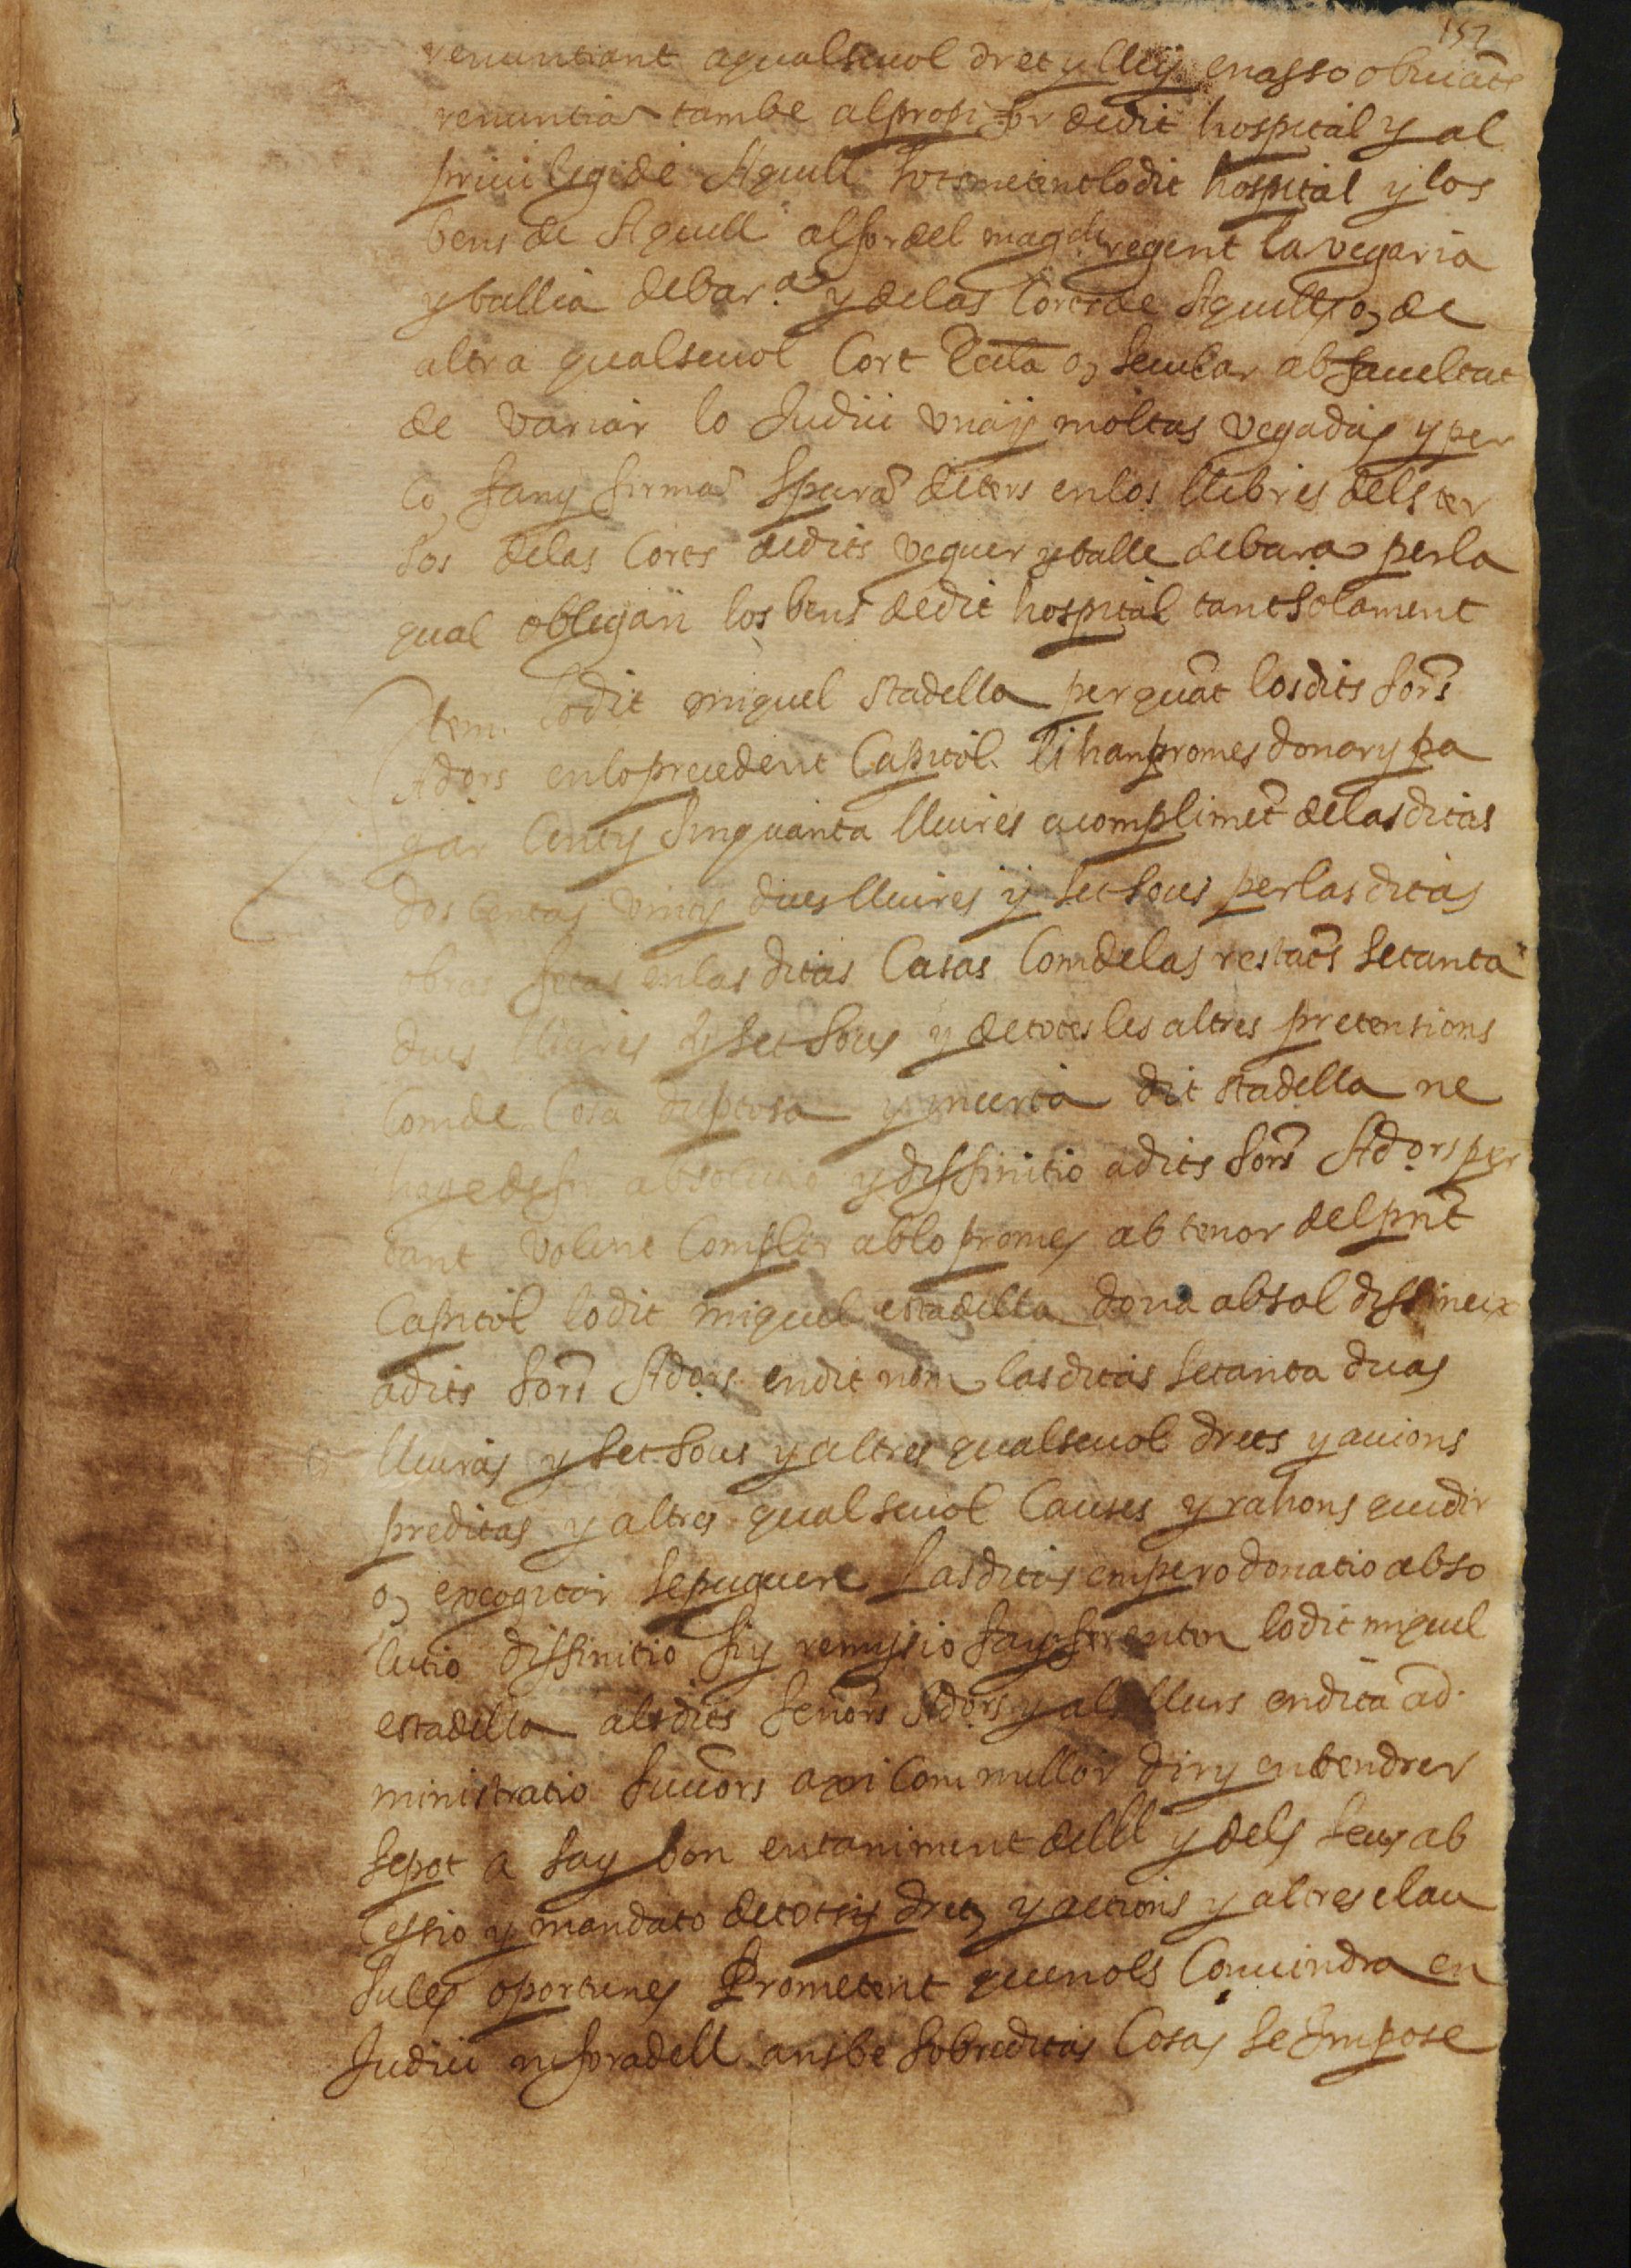 157
renuntiant aqualseuol dret y lley enasso obuiāt
renuntiar tambe alpropi for dedit hospital y al
priuilegi de Aquell sotsmetent lodit hospital y los
bens de Aquell alfor del magch regent la vegaria
y ballia debar.na y delas Corts de Aquells o, de
altra qualseuol Cort Ecclā o, secular ab facultat
de variar lo Judici vna y moltas vegadas y per
ço, fan y firmā sptura de ters en los llibres dels ter
sos delas Corts dedits veguer y balle debarna perla
qual obligan los bens dedit hospital tantsolament
Item lodit miquel stadella per quāt losdits sors
Adors enloprecedent Capitol li hanpromes donar y pa
gar Cent y sinquanta lliures acomplimēt delasditas
dos Centas vint y dues lliures y set sous perlasditas
obras fetas enlasditas Casas Comdelas restāts setanta
dues lliures y set sous y detotes les altres pretensions
Comde Cosa duptosa y incerta dit stadella ne
hage de fer absolucio y diffinitio adits sors Adors per
tant volent Complir ablo promes ab tenor delpnt
Capitol lodit miquel estadella dona absol diffineix
adits sors Adors endit nom lasditas setanta duas
lliuras y set sous y altres qualseuol drets y actions
preditas y altres qualseuol Causes y rahons quedir
o, excogitar sepuguen Lasditas empero donatio abso
lutio diffinitio fi y remissio fa y lodit miquel
estadella alsdits señors Adors y als llurs endita ad
ministratio succors axi Com millor dir y entendrer
sepot a sa y bon enteniment dell y dels seus ab
Cessio y mandato detots drets y actions y altres clau
sules oportunes Prometent quenols Conuindra en
Judici ni foradell ansbe sobreditas Cosas se Impose